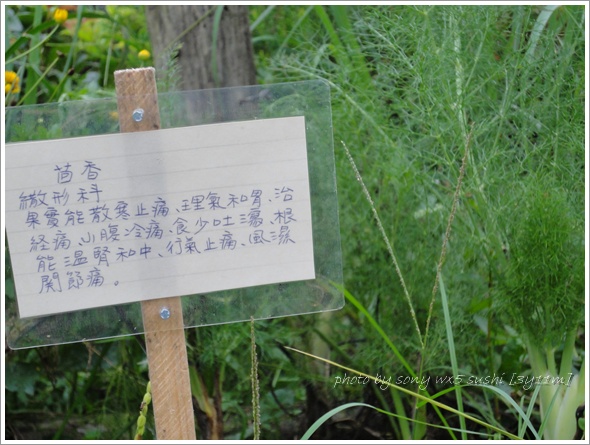 茴香
繖形科
果實能散寒止痛、理氣和胃、治
經痛、小腹冷痛、食少吐瀉、根
能溫腎和中、行氣止痛、風濕
關節痛。
photo by sony wx5 sushi [3y11m]